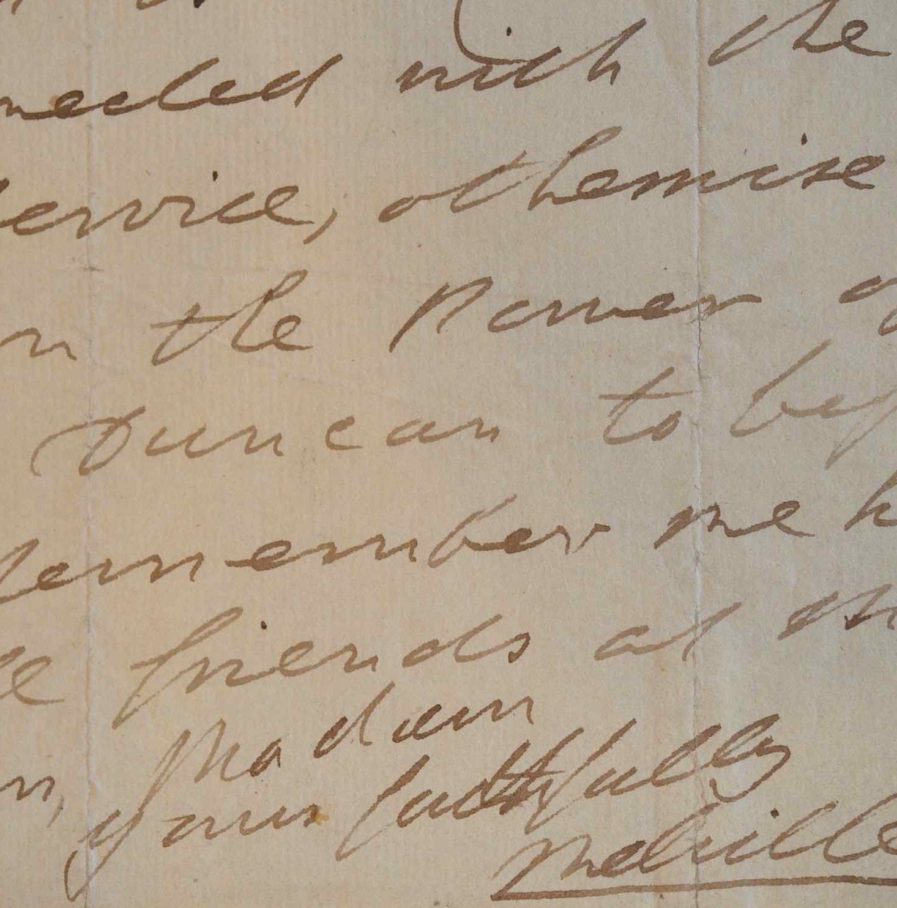 nected with the
service, otherwise
in the Power of
Duncan to bes
Remember me
friends at
Madam
yours faithfully
Melville